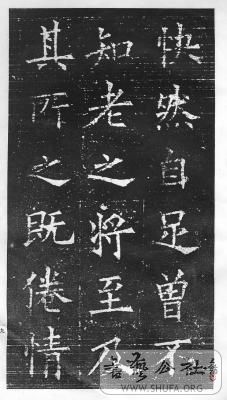 快然自足曽不
知老之将至乃
其所之既倦情
書艺公社
WWW.SHUFA.ORG